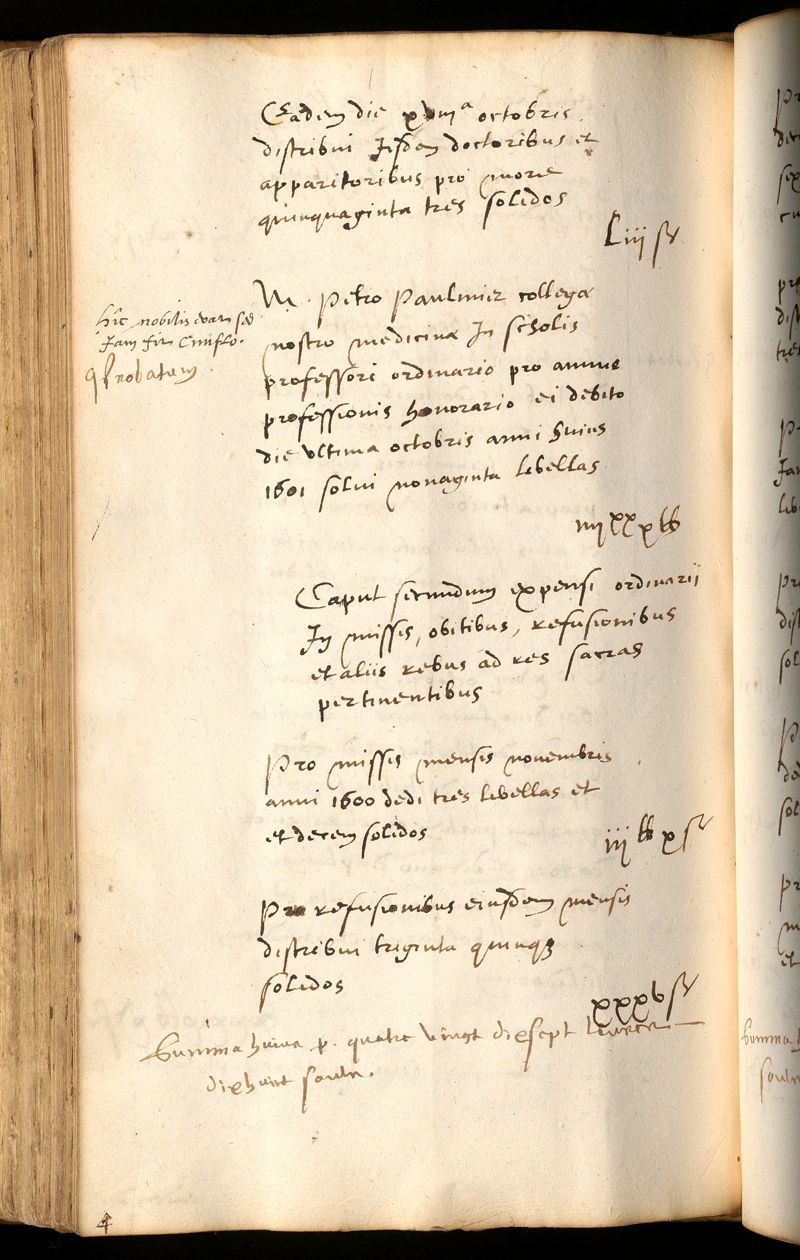 Eadem die xviii^a octobris
distribui iisdem doctoribus et
apparitoribus pro more
quinquaginta tres solidos
Liii s
M. Petro Paulmier collegæ
nostro medicinæ In scholis
professori ordinario pro annuo
professionis honorario ei debito
die ultima octobris anni huius
1601 solui nonaginta libellas
iiii^xx x lb
nobilis
Iam
probatam
Caput secundum expensi ordinarii
In missis, obitibus, refusionibus
et aliis rebus ad res sacras
pertinentibus
Pro missis mensis novembris
anni 1600 dedi tres libellas et
et decem solidos
iii lb x s
Pro refusionibus eiusdem mensis
distribui triginta quinq3
solidos
xxxv s
Summa huius p. quatre vingt dixsept livres
dixhuit soulz.
4